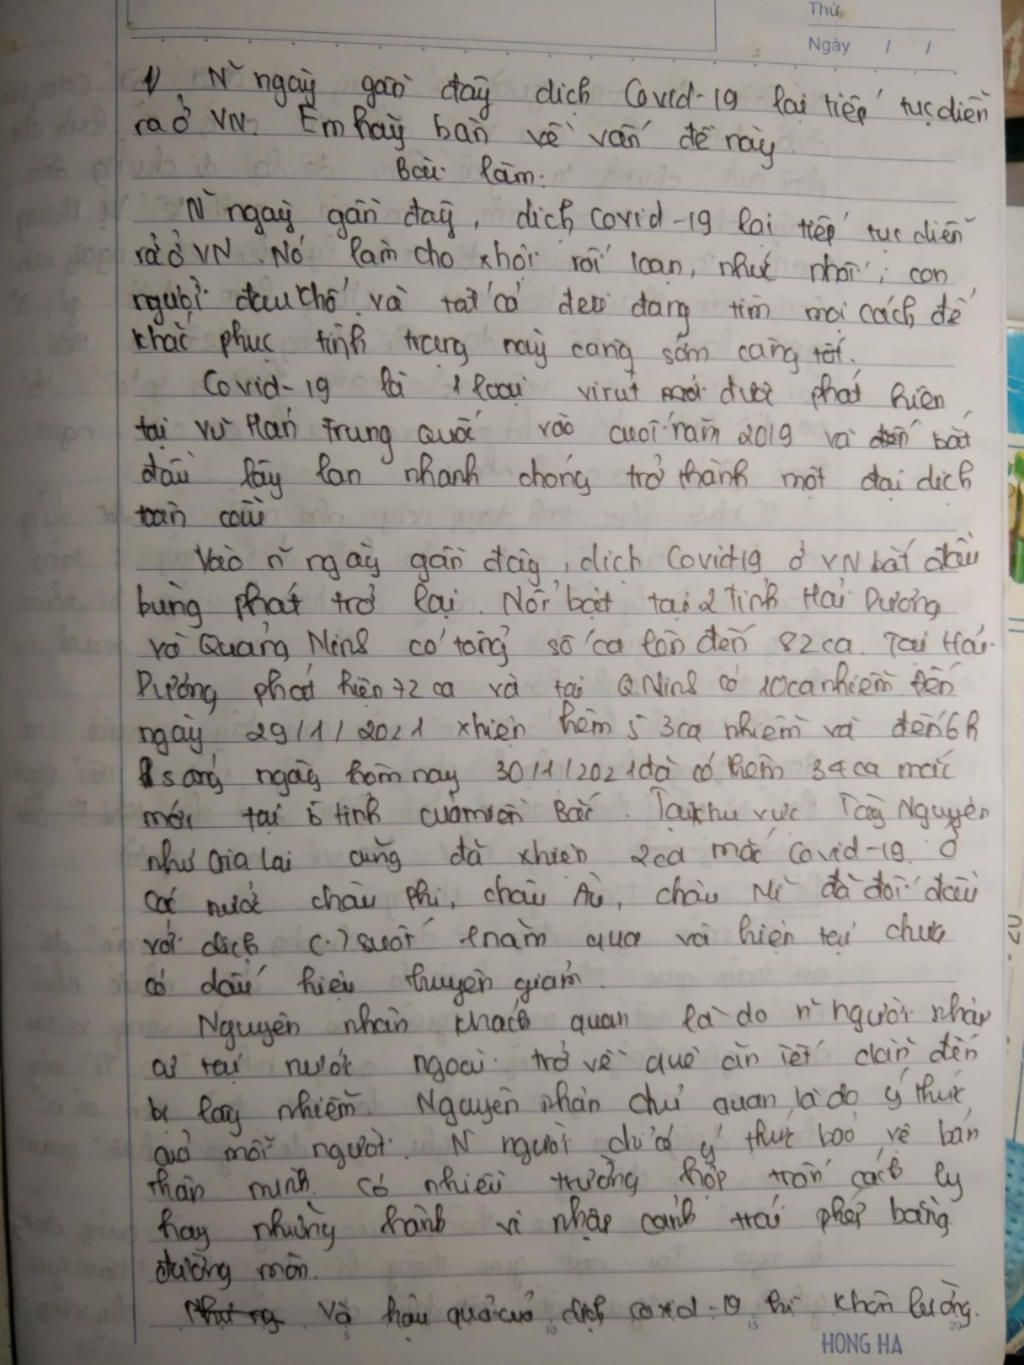 Thứ
Ngày / /
1) N~ ngày gần đây dịch Covid-19 lại tiếp tục diễn
ra ở VN. Em hãy bàn về vấn đề này
Bài làm.
N~ ngày gần đây, dịch Covid-19 lại tiếp tục diễn
ra ở VN. Nó làm cho xhội rối loạn, nhức nhối, con
người đau khổ và tất cả đều đang tìm mọi cách để
khắc phục tình trạng này càng sớm càng tốt.
Covid-19 là 1 loại virut mới được phát hiện
tại Vũ Hán Trung Quốc vào cuối năm 2019 và bắt
đầu lây lan nhanh chóng trở thành một đại dịch
toàn cầu
Vào n~ ngày gần đây, dịch Covid19 ở VN bắt đầu
bùng phát trở lại. Nổi bật tại 2 tỉnh Hải Dương
và Quảng Ninh có tổng số ca lên đến 82 ca. Tại Hải
Dương phát hiện 72 ca và tại Q.Ninh có 10 ca nhiễm Đến
ngày 29/1/2021 xhiện thêm 53 ca nhiễm và đến 6h
sáng ngày hôm nay 30/1/2021 đã có thêm 34 ca mắc
mới tại 5 tỉnh của miền Bắc. Tại khu vực Tây Nguyên
như Gia Lai cũng đã xhiện 2 ca mắc Covid-19. Ở
các nước châu Phi, châu Âu, châu Mĩ đã đối đầu
với dịch (-) suốt 1 năm qua và hiện tại chưa
có dấu hiệu thuyên giảm.
Nguyên nhân khách quan là do n~ người nhập
cư tại nước ngoài trở về quê ăn tết dẫn đến
bị lây nhiễm. Nguyên nhân chủ quan là do ý thức
của mỗi người. N~ người chư có ý thức bảo vệ bản
thân mình. Có nhiều trường hợp trốn cách ly
hay những hành vi nhập cảnh trái phép bằng
đường mòn.
Và hậu quả của dịch covid-19 thì khôn lường.
HONG HA